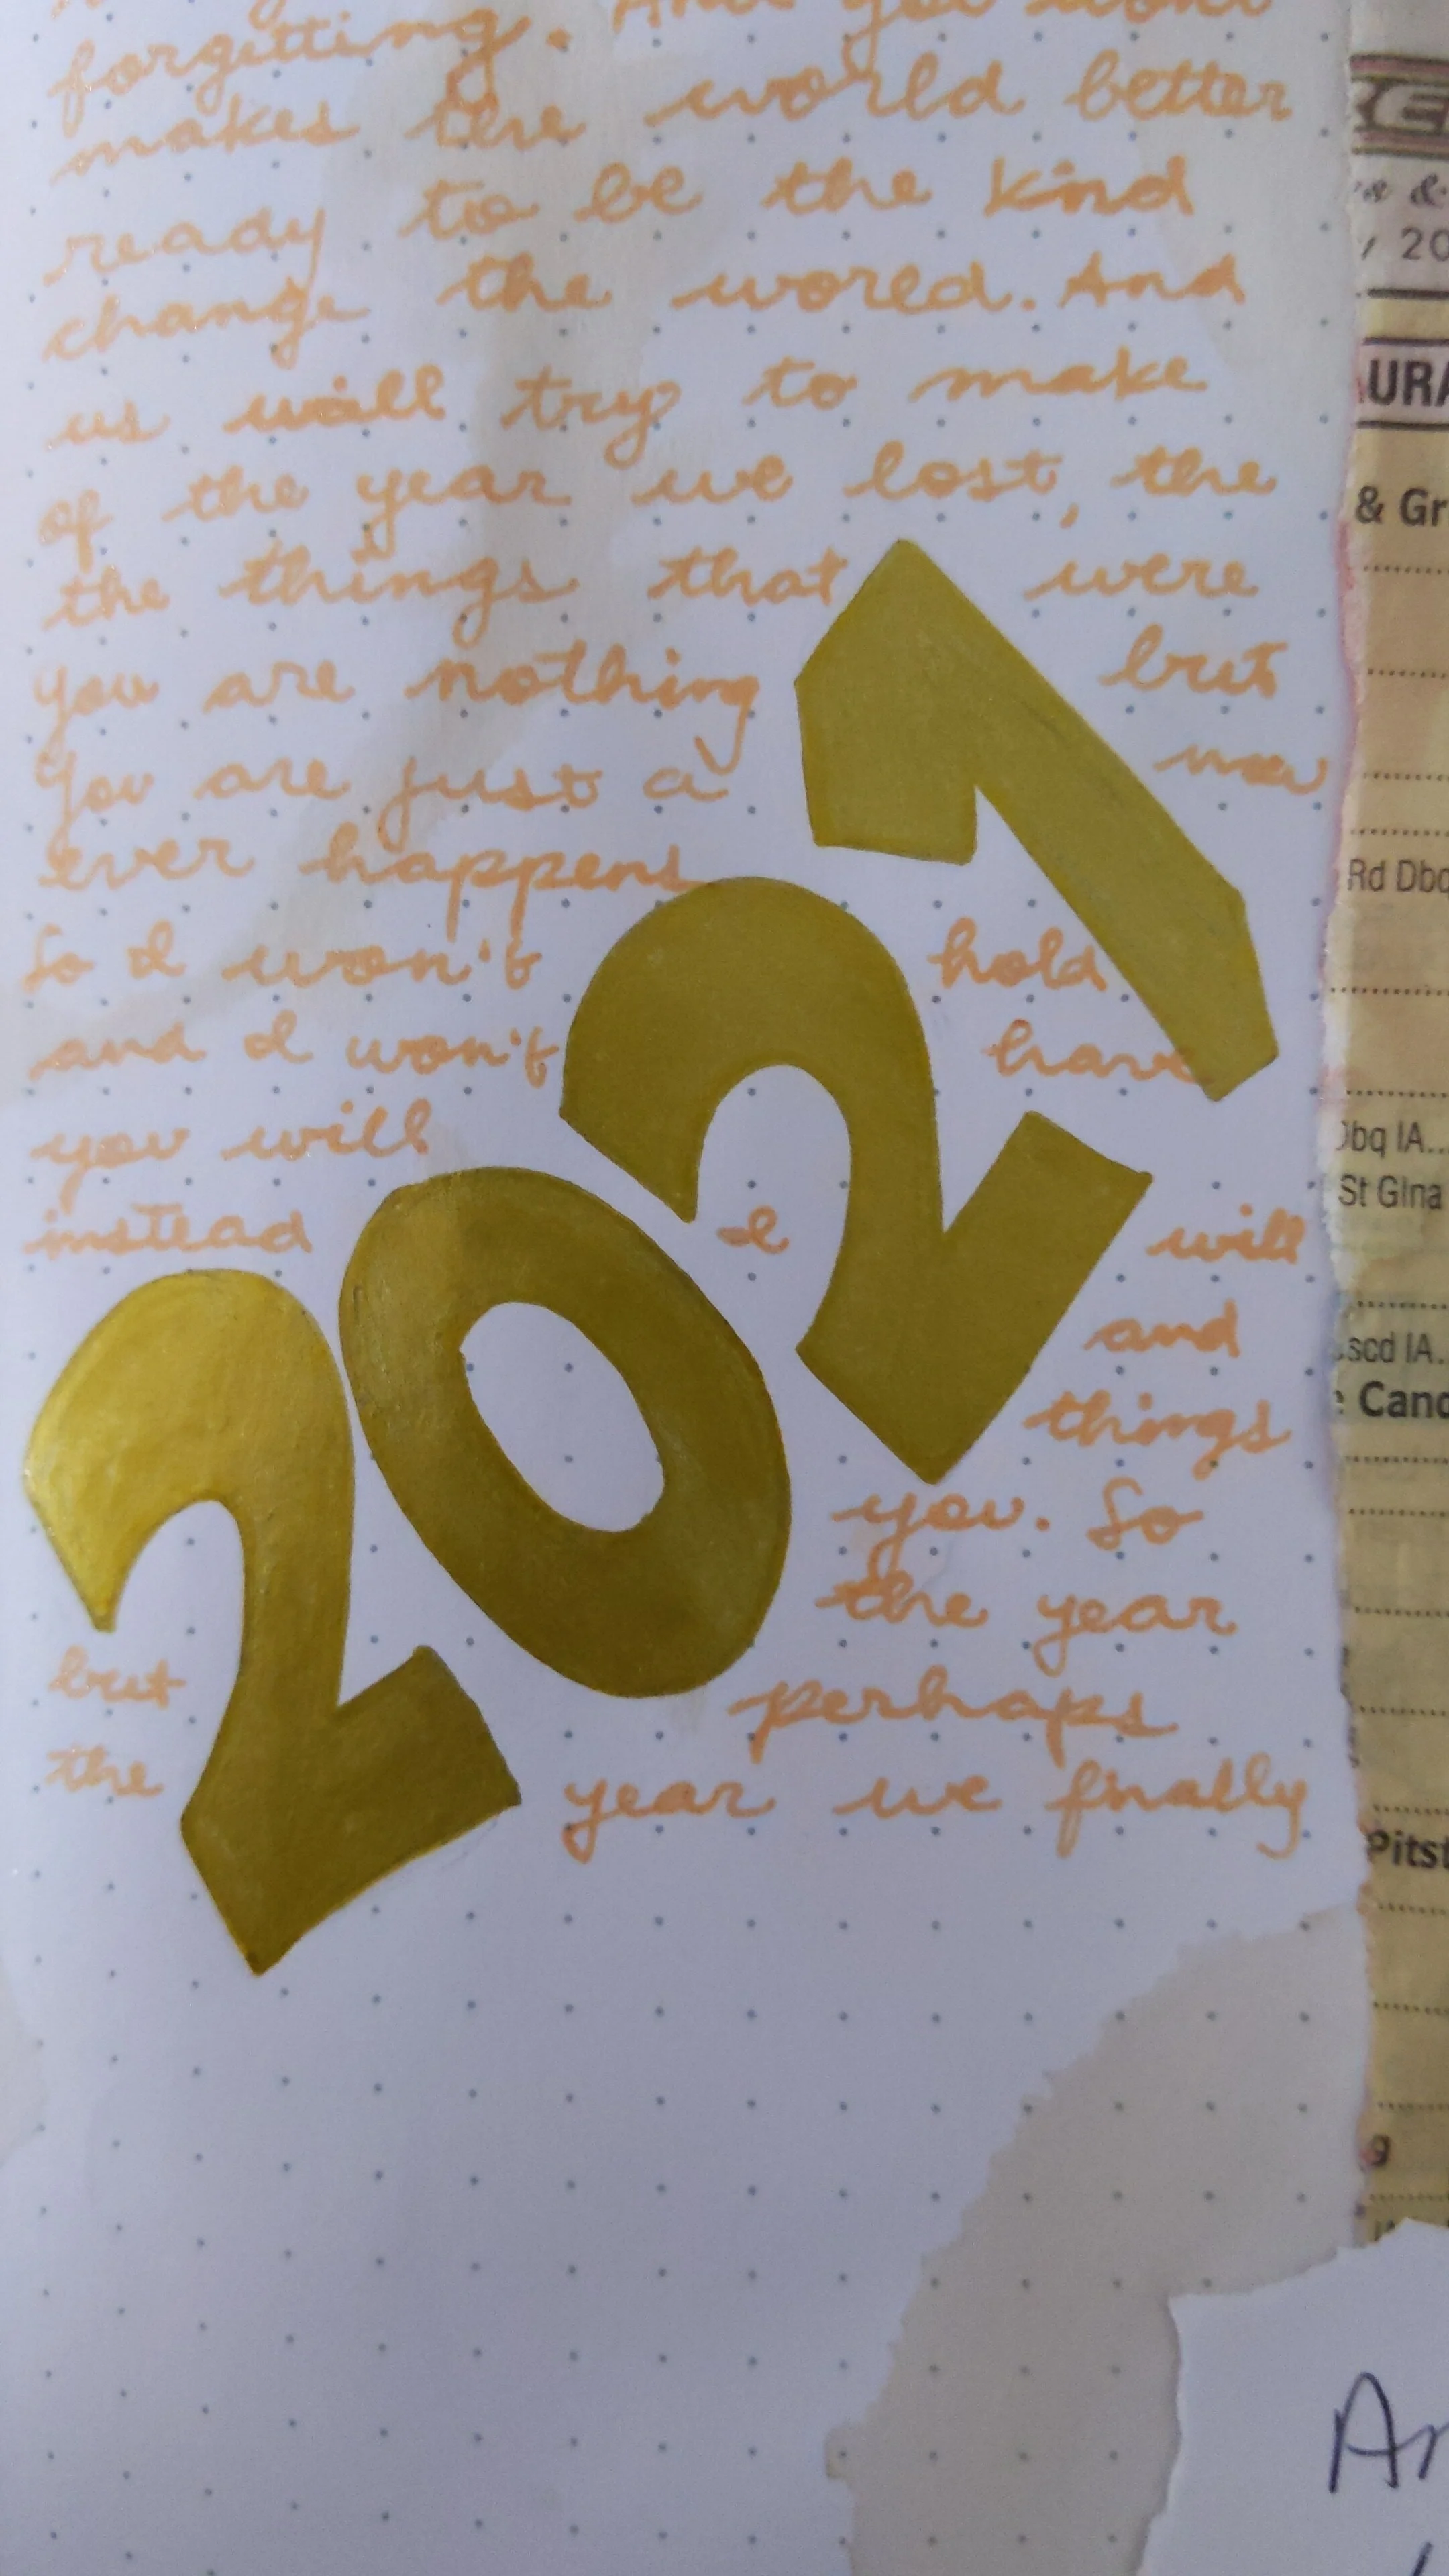 forgetting. And you won't
makes the world better
ready to be the kind
change the world. And
us will try to make
of the year we lost, the
the things that were
you are nothing but
You are just a new
ever happens
So I won't hold
and I won't have
you will
instead I will
and
things
you. So
the year
but perhaps
the year we finally
2021
& 
20
URA
& Gr
Rd Dbq
Dbq IA..
St Gina
scd IA..
Canc
Pitst
g
Ar